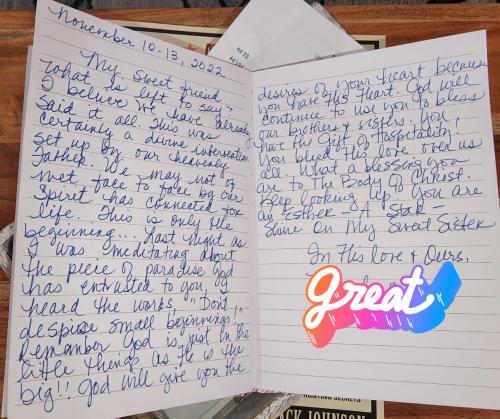 November 10-13, 2022
My sweet friend,
What is left to say?
I believe we have already
said it all. This was
certainly a divine intervention
set up by our heavenly
Father. We may not of
met face to face by our
Spirit has connected for
life. This is only the
beginning... Last night as
I was meditating about
the piece of paradise God
has entrusted to you, I
heard the words, "Don't
despise small beginnings!"
Remember God is just in the
little things as He is the
big!! God will give you the
desires of your heart because
you have His Heart. God will
continue to use you to bless
our brothers & sisters. You
have the Gift of Hospitality!
You bleed His love over us
all. What a blessing you
are to the Body of Christ.
Keep looking up! You are
an Esther - A Star -
Shine On My Sweet Sister
In His love & Ours,
great
HUNTING SECRETS
CK JOHNSON